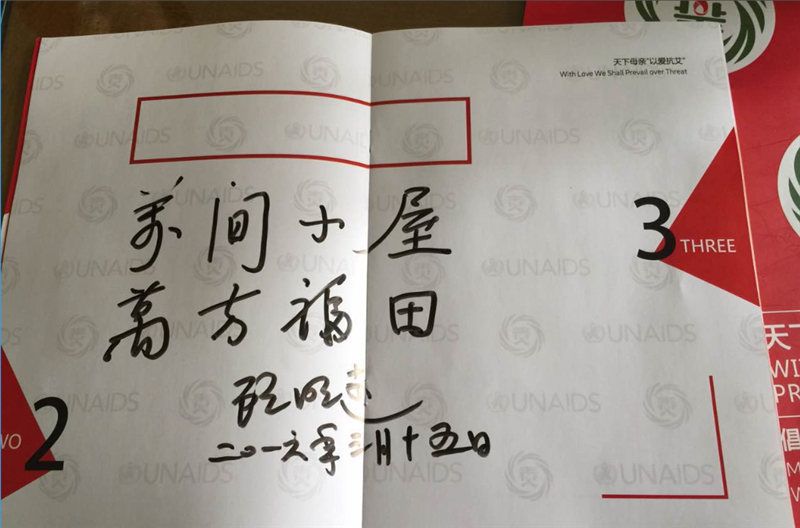 天下母亲“以爱抗艾”
With Love We Shall Prevail over Threat
UNAIDS
间小屋
萬方福田
二〇一六年三月十五日
3 THREE
2
WO
天下
WI
PR
倡